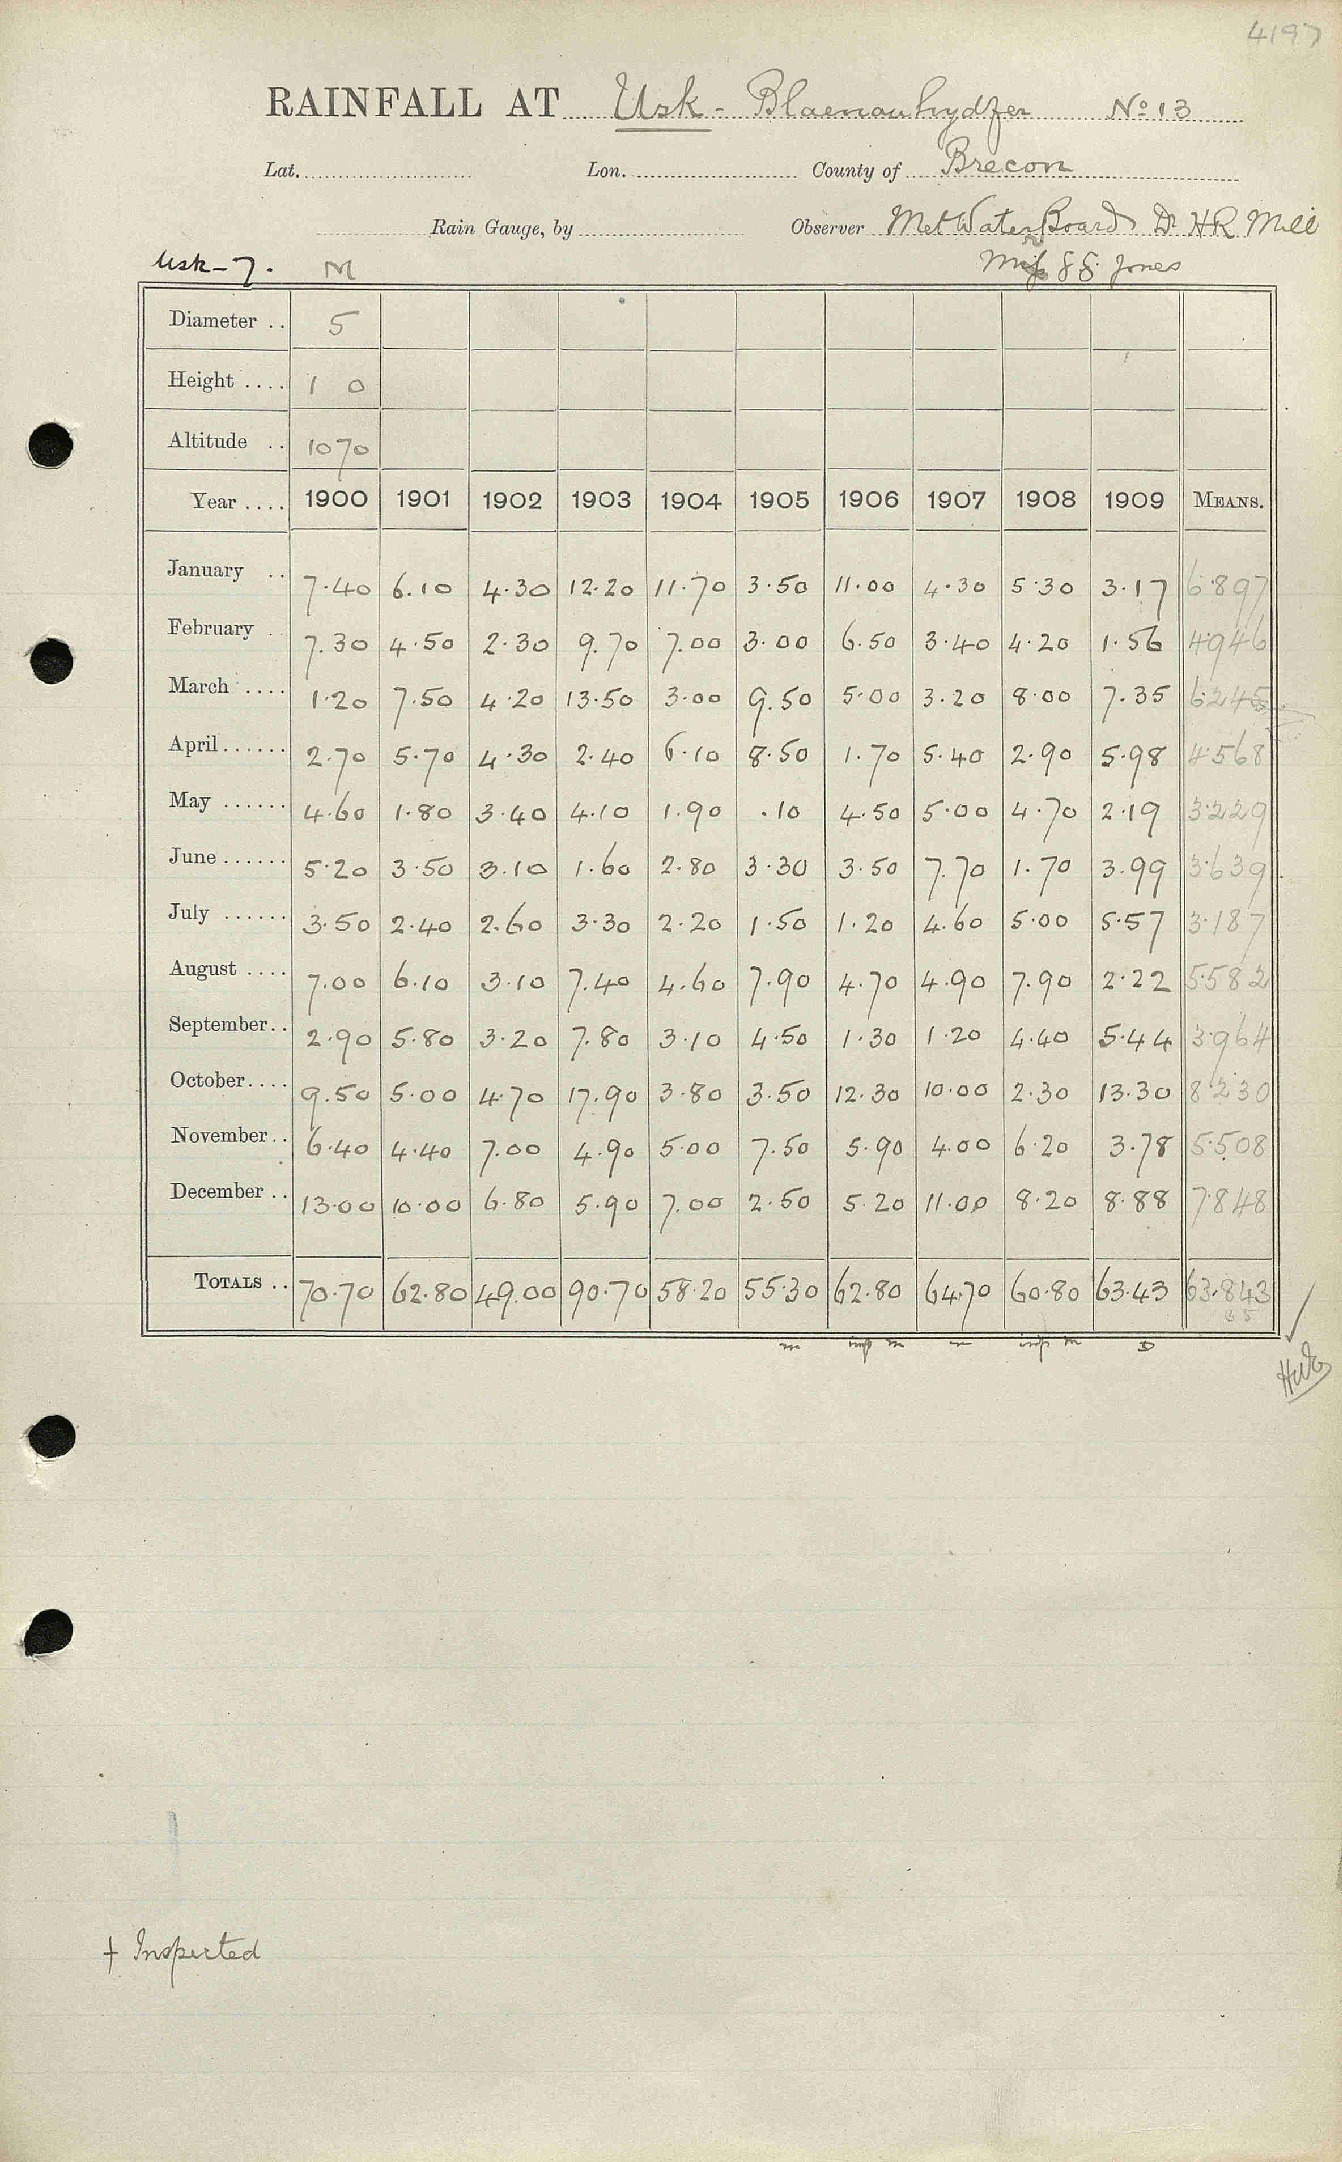 4197
RAINFALL AT Usk - Blaenauhydfer No 13
Lat. Lon. County of Brecon
Rain Gauge, by Observer Met Water Board Dr HR Mill
Usk-7. M Miss S S Jones
Diameter .. 5
Height .... 1 0
Altitude .. 1070
Year .... 1900 1901 1902 1903 1904 1905 1906 1907 1908 1909 MEANS.
January .. 7.40 6.10 4.30 12.20 11.70 3.50 11.00 4.30 5.30 3.17 6.897
February . 7.30 4.50 2.30 9.70 7.00 3.00 6.50 3.40 4.20 1.56 4.946
March .... 1.20 7.50 4.20 13.50 3.00 9.50 5.00 3.20 8.00 7.35 6.245
April...... 2.70 5.70 4.30 2.40 6.10 8.50 1.70 5.40 2.90 5.98 4.568
May ...... 4.60 1.80 3.40 4.10 1.90 .10 4.50 5.00 4.70 2.19 3.229
June ...... 5.20 3.50 3.10 1.60 2.80 3.30 3.50 7.70 1.70 3.99 3.639
July ...... 3.50 2.40 2.60 3.30 2.20 1.50 1.20 4.60 5.00 5.57 3.187
August .... 7.00 6.10 3.10 7.40 4.60 7.90 4.70 4.90 7.90 2.22 5.582
September.. 2.90 5.80 3.20 7.80 3.10 4.50 1.30 1.20 4.40 5.44 3.964
October.... 9.50 5.00 4.70 17.90 3.80 3.50 12.30 10.00 2.30 13.30 8.230
November.. 6.40 4.40 7.00 4.90 5.00 7.50 5.90 4.00 6.20 3.78 5.508
December .. 13.00 10.00 6.80 5.90 7.00 2.50 5.20 11.00 8.20 8.88 7.848
TOTALS .. 70.70 62.80 49.00 90.70 58.20 55.30 62.80 64.70 60.80 63.43 63.843
35
m insp m m insp m D
† Inspected